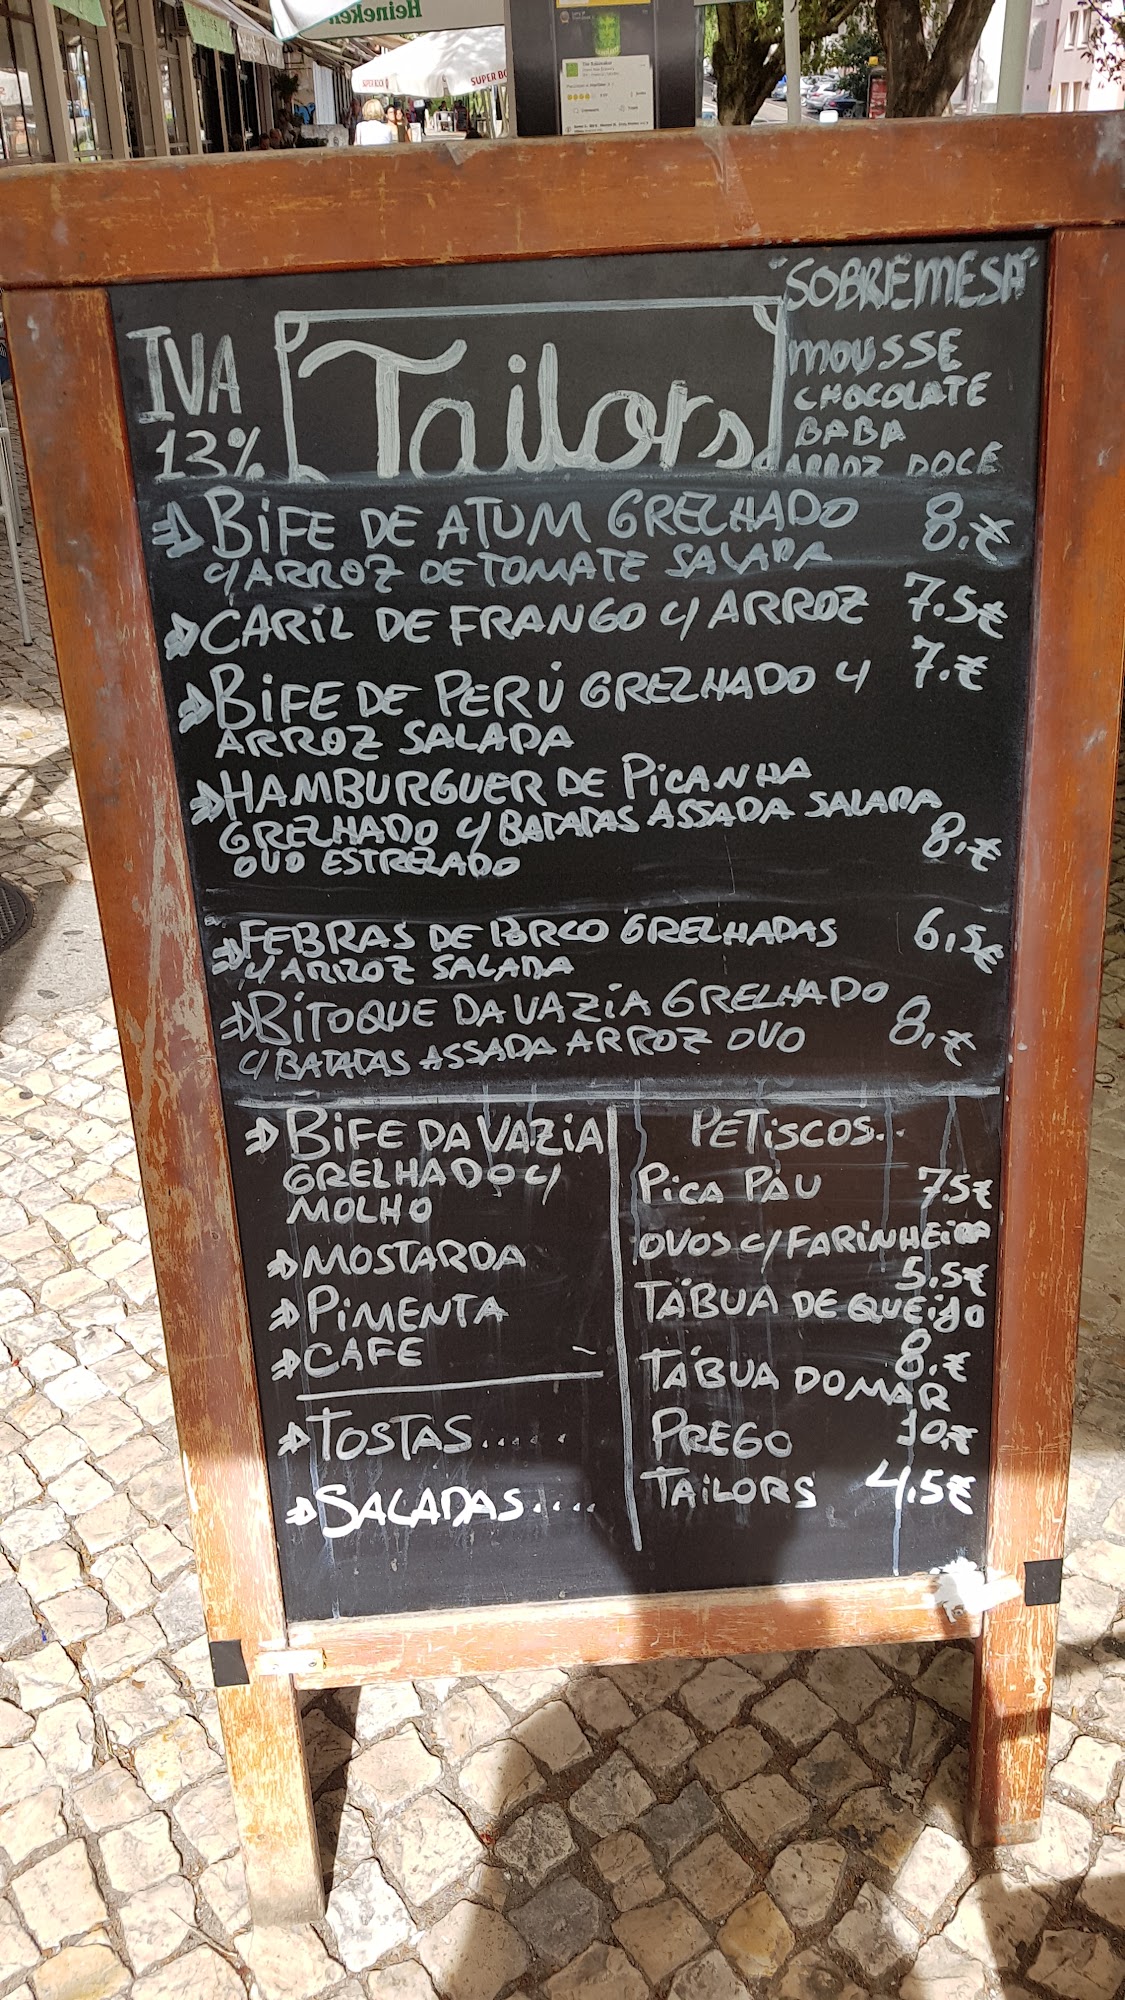 Heineken
SUPER BO
IVA
13%
Tailors
"SOBREMESA"
MOUSSE
CHOCOLATE
BABA
ARROZ DOCE
BIFE DE ATUM GRELHADO 8,€
C/ ARROZ DE TOMATE SALADA
CARIL DE FRANGO C/ ARROZ 7.5€
BIFE DE PERÚ GRELHADO C/ 7.€
ARROZ SALADA
HAMBURGUER DE PICANHA
GRELHADO C/ BATATAS ASSADA SALADA
OVO ESTRELADO 8,€
FEBRAS DE PORCO GRELHADAS 6,5€
C/ ARROZ SALADA
BITOQUE DA VAZIA GRELHADO 8,€
C/ BATATAS ASSADA ARROZ OVO
BIFE DA VAZIA
GRELHADO C/
MOLHO
MOSTARDA
PIMENTA
CAFE
TOSTAS.....
SALADAS....
PETISCOS...
PICA PÀU 7.5€
OVOS C/ FARINHEIRA
5.5€
TÁBUA DE QUEIJO
8.€
TÁBUA DO MAR
PREGO 10,€
TAILORS 4,5€